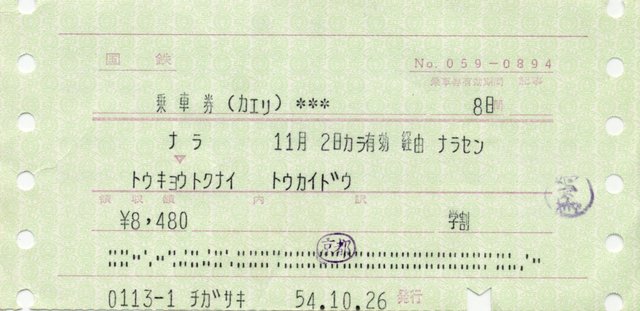 国鉄 No. 059-0894
乗車券有効期間 記事
乗車券(カエリ) *** 8日間
ナラ 11月 2日カラ有効 経由 ナラセン
トウキョウトクナイ トウカイドウ
領収額 内訳
¥8,480 学割
京都
0113-1 チガサキ 54.10.26 発行